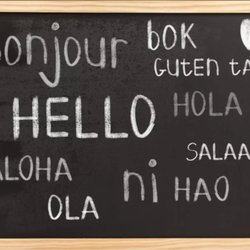 onjour
bok
GUTEN TA
HELLO
HOLA
SALAA
ALOHA
ni HAO
OLA